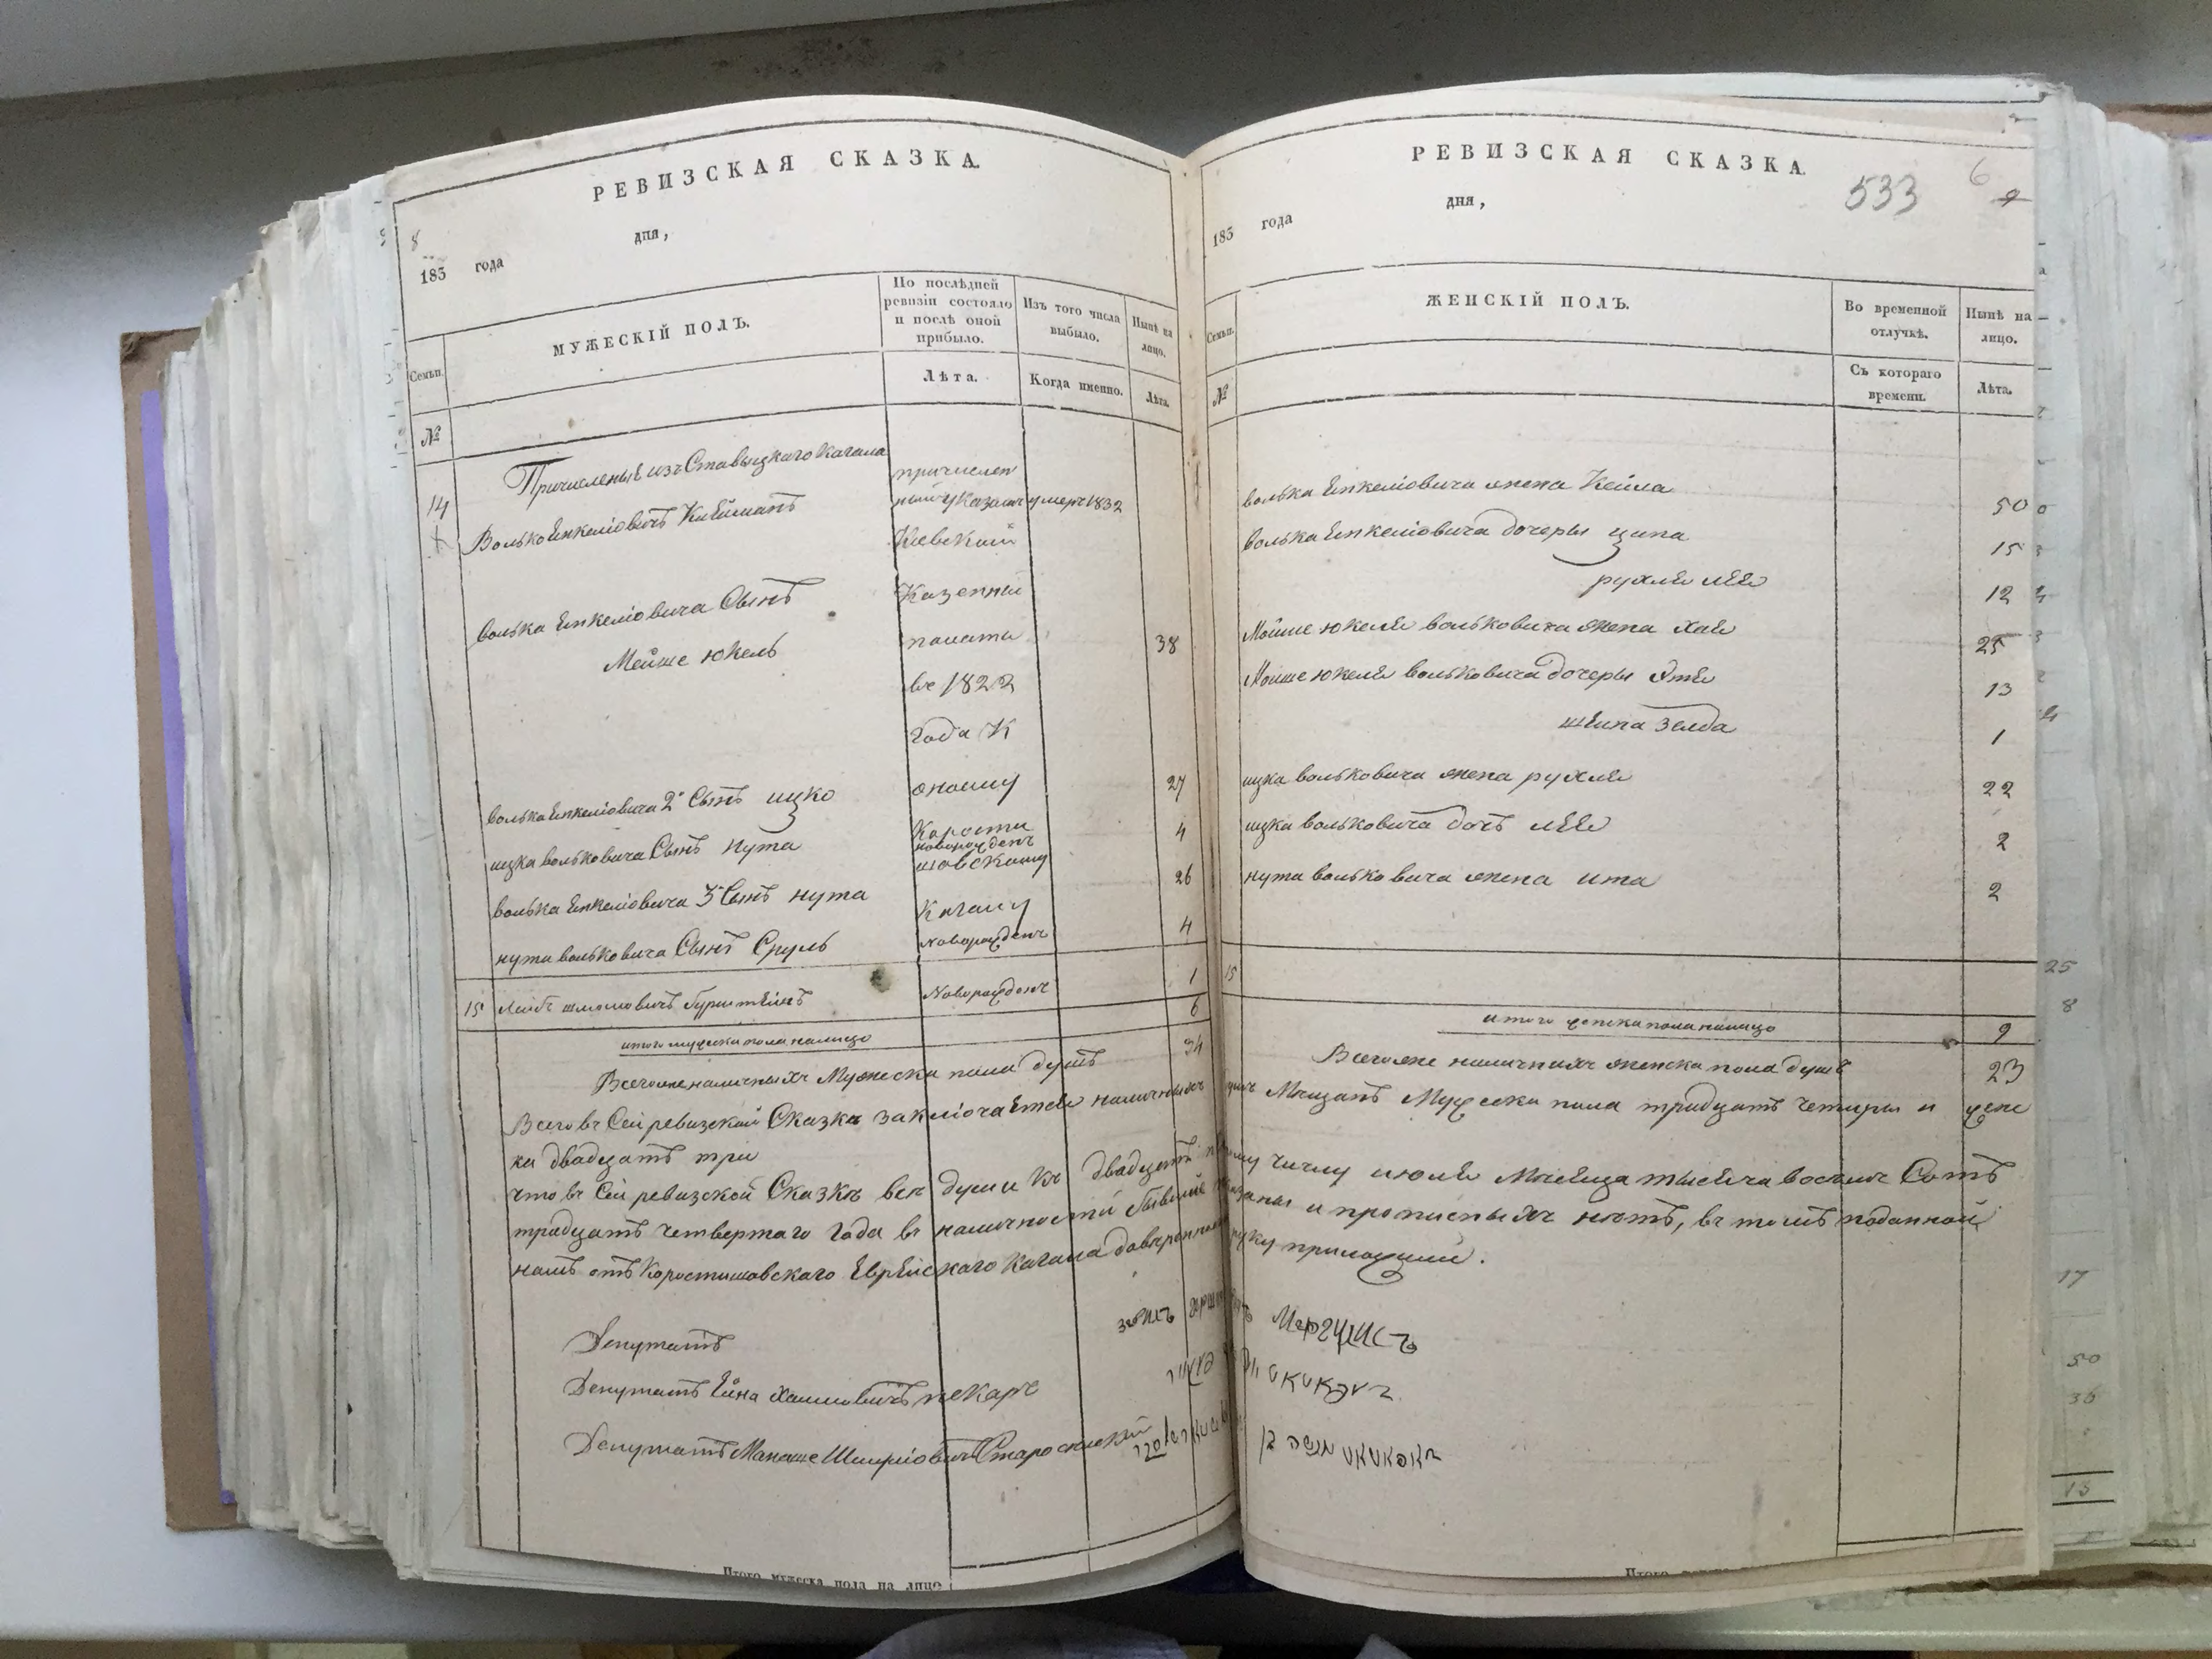 РЕВИЗСКАЯ СКАЗКА.
8
183 года
дня,
Семьи.
№
МУЖЕСКІЙ ПОЛЪ.
По послѣдней ревизіи состояло и послѣ оной прибыло.
Лѣта.
Изъ того числа выбыло.
Когда именно.
Нынѣ на лицо.
Лѣта.
Причисленые изъ Ставыцкаго Кагала
14
Волько Енкеліовичъ
причислен
умеръ 1832
Киевской
Казенни
палати
въ 1822
Года К
оному
Корости
новорожденъ
шовскому
Кагалу
Новорожденъ
волька Енкеліовича Сынъ
Мейше Юкель
38
волька Енкеліовича 2й Сынъ ицко
27
ицка вольковича Сынъ Нута
4
волька Енкеліовича 3 Сынъ нута
26
нута вольковича Сынъ Сруль
4
15 шмоловичъ
Новорожденъ
1
итого мужеска пола налицо
6
Всегоже наличныхъ Мужеска пола душъ
34
РЕВИЗСКАЯ СКАЗКА.
533
6
183 года
дня,
Семьи.
№
ЖЕНСКІЙ ПОЛЪ.
Во временной отлучкѣ.
Съ котораго времени.
Нынѣ на лицо.
Лѣта.
волька Енкеліовича жена Кейла
50
волька Енкеліовича дочеры ципа
15
рухля лея
12
Мойше юкеля вольковича жена хая
25
Мойше юкеля вольковича дочеры Этя
13
шейна Зелда
1
ицка вольковича жена рухля
22
ицка вольковича дочъ лея
2
нута вольковича жена ита
2
15
итого женска пола налицо
9
Всегоже наличнихъ женска пола душъ
23
Всего въ Сей ревизской Сказке заключается наличныхъ душъ Мещанъ Мужеска пола тридцать четыри и женс
ка двадцать три
что въ Сей ревизской Сказкѣ всѣ души къ двадцать числу июля Месяца тысяча восемъ Сотъ
тридцать четвертаго Года въ наличности бывшие показаны и прописныхъ нетъ, въ томъ поданной
намъ отъ Коростишовскаго Еврейскаго Кагала доверенности руку приложили.
Депутатъ
Депутатъ Ейна Хаимовичъ пекаръ
Депутатъ Манаше Шмуліовичъ Старосельский
25
8
17
50
36
15
Итого мужеска пола на лицо
Итого